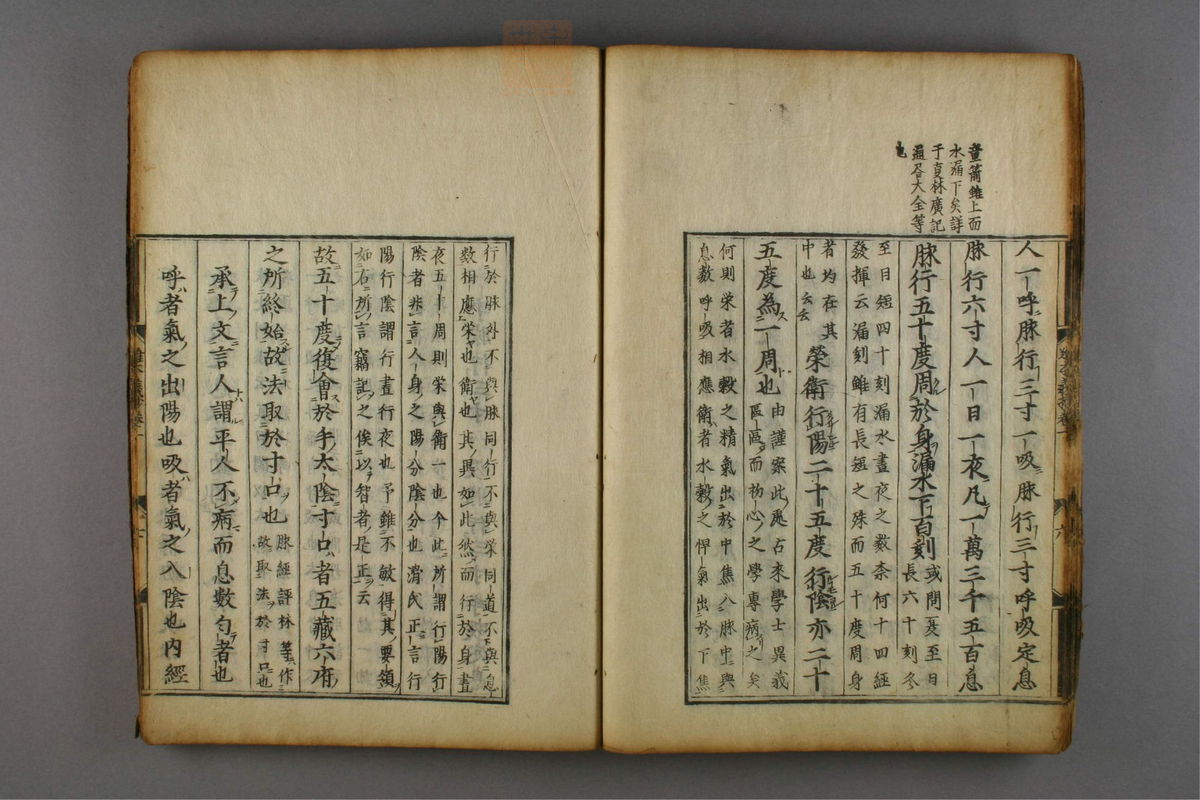 童箭雖上而
水漏下矣詳
于夏林廣記
週居大全等
也
人一呼脉行三寸一吸脉行三寸呼吸定息
脉行六寸人一日一夜凡一萬三千五百息
脉行五十度周於身漏水下百刻
或問夏至日
長六十刻冬
至日短四十刻漏水晝夜之數柰何十四經
發揮云漏刻雖有長短之殊而五十度周身
者均在其
中也云云
榮衛行陽二十五度行陰亦二十
五度為一周也
由謹案此愚占來學士異義
區區而初心之學專病之矣
何則栄者水穀之精氣出於中焦入脉中與
息數呼吸相應衛者水穀之悍氣出於下焦
行於脉外不與脉同行不與栄同道不與息
數相應栄也衛也其異如此然而行於身晝
夜五十周則栄與衛一也今此所謂行陽行
陰者非言人身之陽分陰分也滑氏正言行
陽行陰謂行晝行夜也予雖不敏得其要領
如右所言竊記之俟以智者是正云
故五十度復會於手太陰寸口者五藏六府
之所終始故法取於寸口也
脉經評林等作
故取法於寸口也
承上文言人謂平人不病而息數勻者也
呼者氣之出陽也吸者氣之入陰也内經